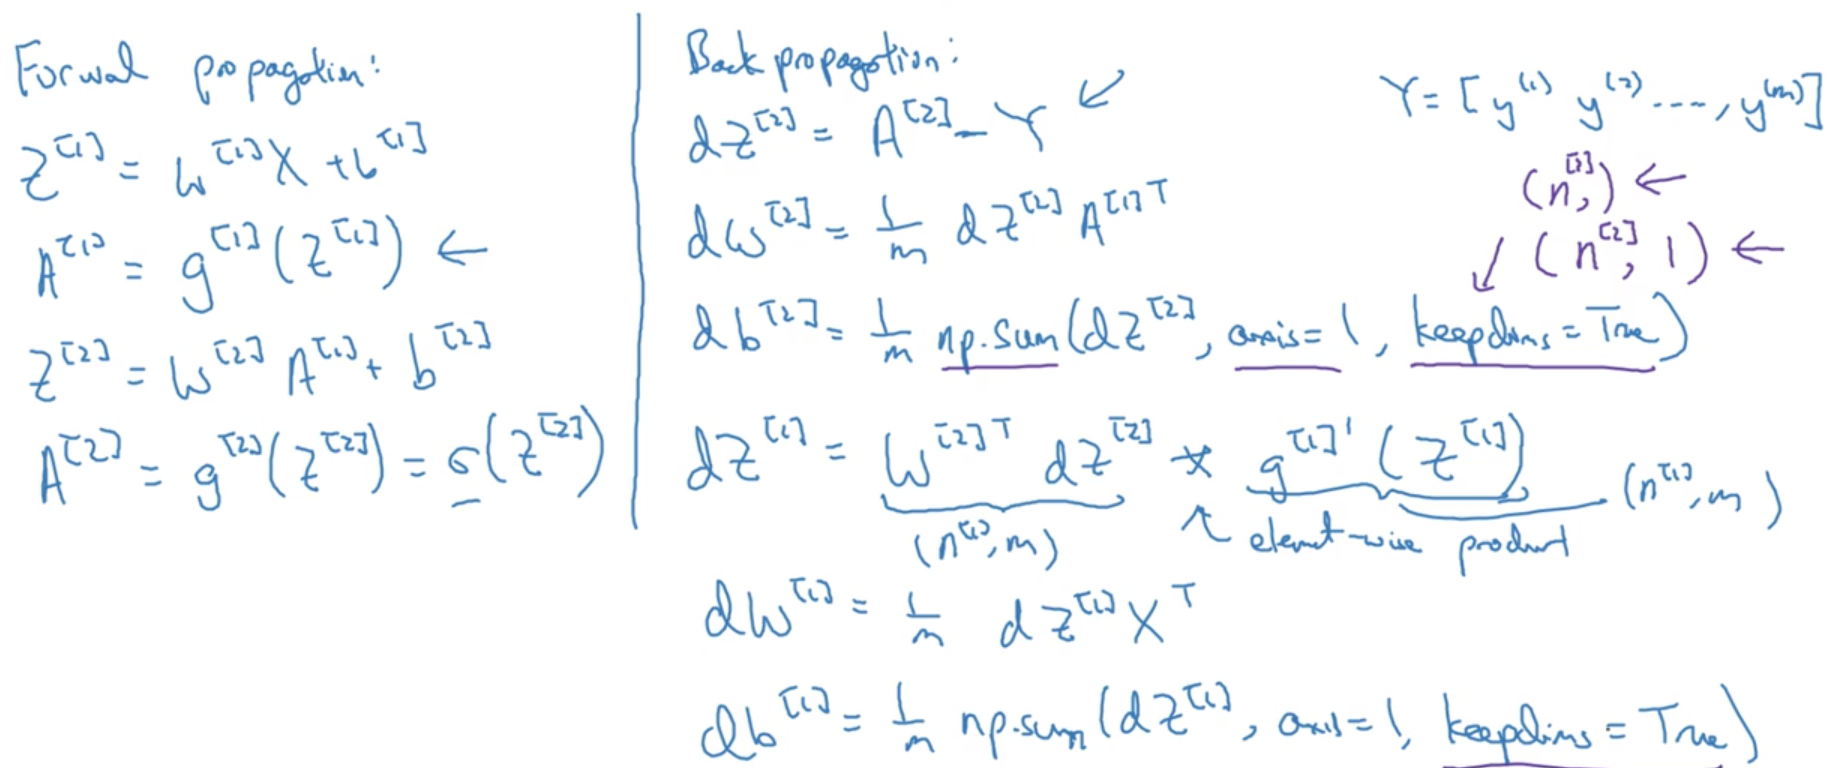 Forwal propagation:
Z^[1] = W^[1]X + b^[1]
A^[1] = g^[1](Z^[1]) ←
Z^[2] = W^[2] A^[1] + b^[2]
A^[2] = g^[2](Z^[2]) = σ(Z^[2])
Back propagation:
dZ^[2] = A^[2] - Y ↙
dW^[2] = 1/m dZ^[2] A^[1]T
db^[2] = 1/m np.sum(dZ^[2], axis=1, keepdims=True)
dZ^[1] = W^[2]T dZ^[2] * g^[1]'(Z^[1])
(n^[1], m)
↖ element-wise product
(n^[1], m)
dW^[1] = 1/m dZ^[1] X^T
db^[1] = 1/m np.sum(dZ^[1], axis=1, keepdims=True)
Y = [y^(1) y^(2) ----, y^(m)]
(n^[2],) ←
↓ (n^[2], 1) ←